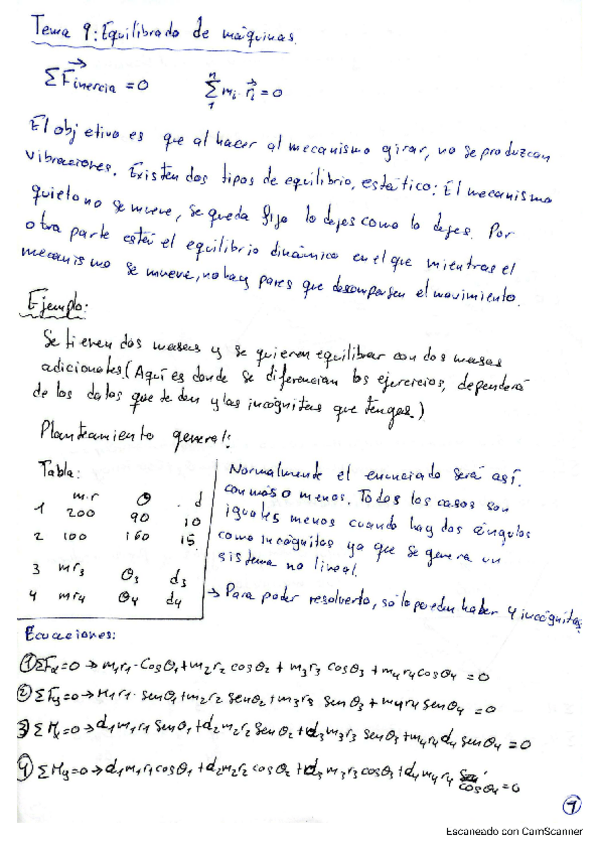 Tema 9: Equilibrado de máquinas.
ΣF⃗inercia = 0
n Σ 1 mi · r⃗i = 0
El objetivo es que al hacer al mecanismo girar, no se produzcan
vibraciones. Existen dos tipos de equilibrio, estático: El mecanismo
quieto no se mueve, se queda fijo lo dejes como lo dejes. Por
otra parte está el equilibrio dinámico en el que mientras el
mecanismo se mueve, no hay pares que descompensen el movimiento.
Ejemplo:
Se tienen dos masas y se quieren equilibrar con dos masas
adicionales. (Aquí es donde se diferencian los ejercicios, dependerá
de los datos que te den y las incógnitas que tengas.)
Planteamiento general:
Tabla:
m.r θ d
1 200 90 10
2 100 160 15
3 mr3 θ3 d3
4 mr4 θ4 d4
Normalmente el enunciado será así.
con más o menos. Todos los casos son
iguales menos cuando hay dos ángulos
como incógnitas ya que se genera un
sistema no lineal.
→ Para poder resolverlo, sólo pueden haber 4 incógnitas.
Ecuaciones:
① ΣFx=0 → m1r1·cosθ1+m2r2 cosθ2 + m3r3 cosθ3 + m4r4 cosθ4 = 0
② ΣFy=0 → m1r1· senθ1+m2r2 senθ2+m3r3 senθ3 + m4r4 senθ4 = 0
③ ΣMx=0 → d1m1r1 senθ1+d2m2r2 senθ2+d3m3r3 senθ3+m4r4d4 senθ4 = 0
④ ΣMy=0 → d1m1r1cosθ1+d2m2r2 cosθ2 +d3 m3r3 cosθ3+d4m4r4 cosθ4=0
1
Escaneado con CamScanner